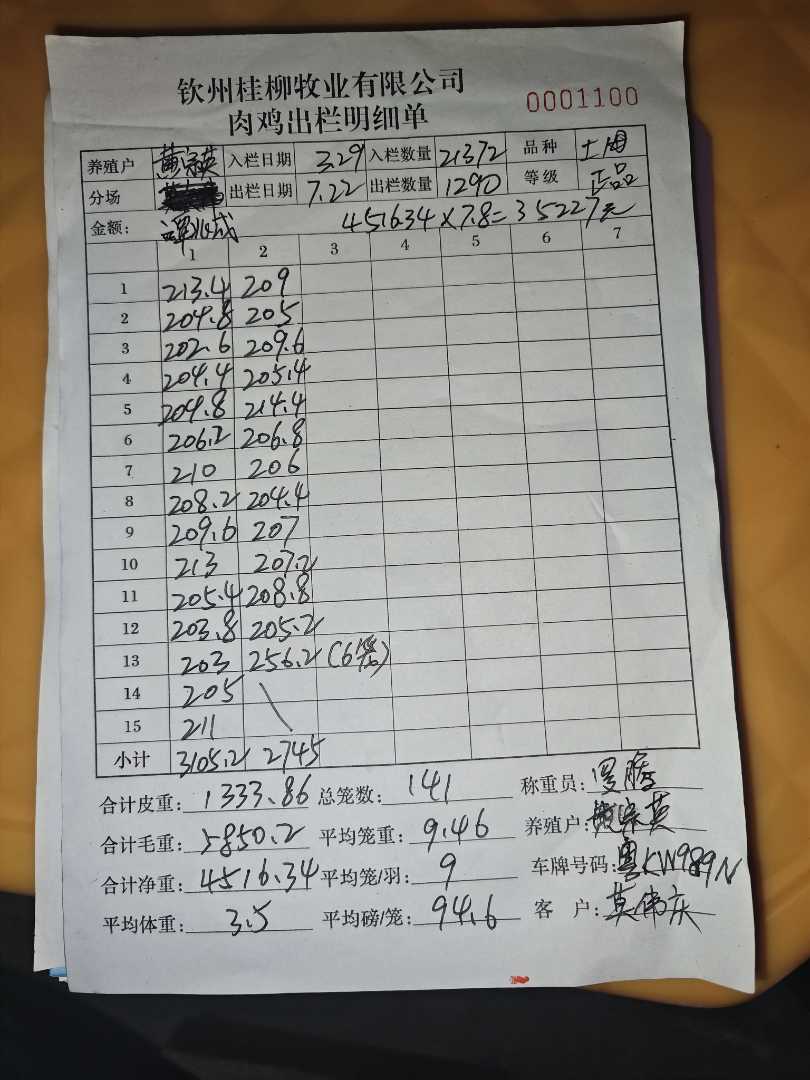 钦州桂柳牧业有限公司
肉鸡出栏明细单 0001100
养殖户 入栏日期 3.29 入栏数量 21372 品种 土
分场 出栏日期 7.22 出栏数量 1290 等级 正品
金额: 4516.34×7.8=35227元
1 2 3 4 5 6 7
1 213.4 209
2 204.8 205
3 202.6 209.6
4 204.4 205.4
5 204.8 214.4
6 206.2 206.8
7 210 206
8 208.2 204.4
9 209.6 207
10 213 207.2
11 205.4 208.8
12 203.8 205.2
13 203 256.2 (6笼)
14 205 \
15 211
小计 3105.2 2745
合计皮重: 1333.86 总笼数: 141 称重员:
合计毛重: 5850.2 平均笼重: 9.46 养殖户:
合计净重: 4516.34 平均笼/羽: 9 车牌号码: 粤KW989N
平均体重: 3.5 平均磅/笼: 94.6 客 户: 莫伟庆